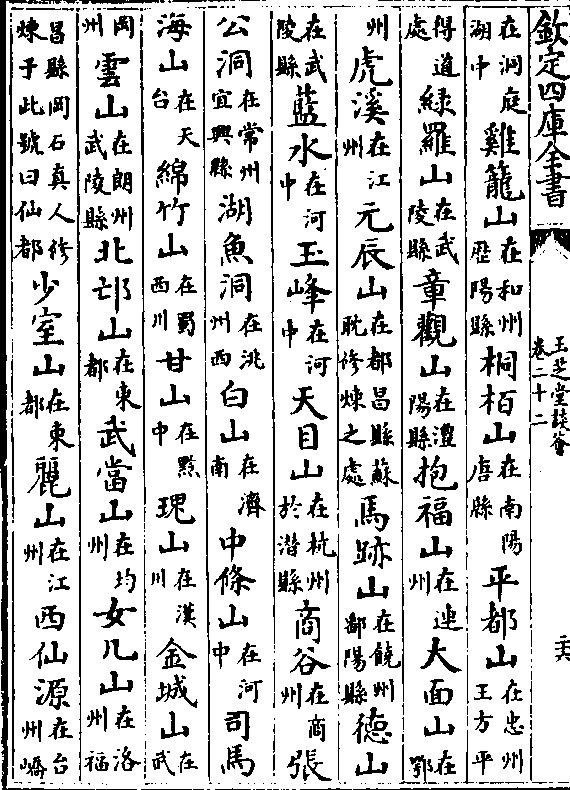 欽定四庫全書
玉芝堂談薈
卷二十二
二六
在洞庭湖中雞籠山在和州歴陽縣桐栢山在南陽唐縣平都山在忠州王方平
得道處緑羅山在武陵縣章觀山在澧陽縣抱福山在連州大面山在鄂
州虎溪在江州元辰山在都昌縣蘇耽修煉之處馬跡山在饒州鄱陽縣德山
在武陵縣藍水在河中玉峰在河中天目山在杭州於潛縣商谷在商州張
公洞在常州宜興縣湖魚洞在洮州西白山在濟南中條山在河中司馬
海山在天台綿竹山在蜀西川甘山在黔中瑰山在漢川金城山在武
岡州雲山在朗州武陵縣北邙山在東都武當山在均州女几山在洛州福
昌縣岡石真人修煉于此號曰仙都少室山在東都麗山在江州西仙源在台州嶠